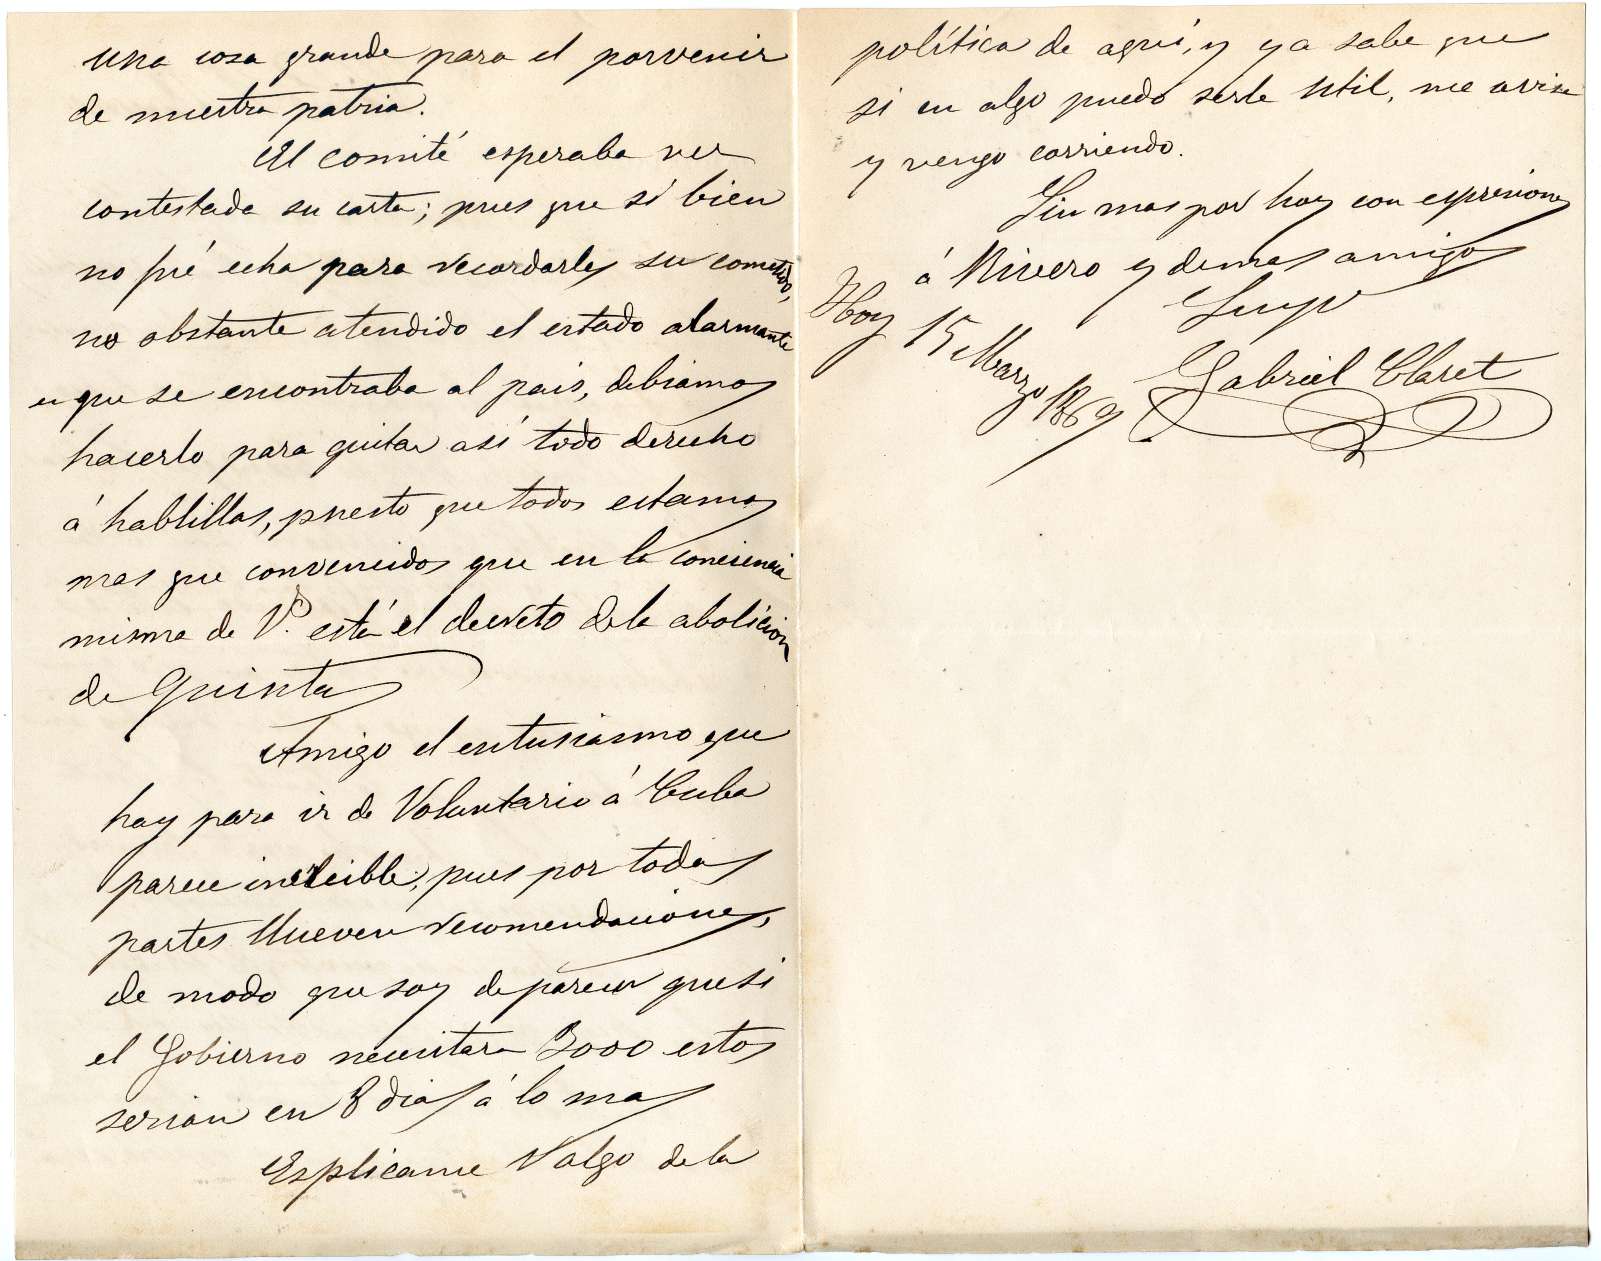 una cosa grande para el porvenir
de nuestra patria.
El comité esperaba ver
contestada su carta; pues que si bien
no fué echa para recordarles su cometido,
no obstante atendido el estado alarmante
en que se encontraba al pais, debiamos
hacerlo para quitar así todo derecho
á hablillas, puesto que todos estamos
mas que convencidos que en la conciencia
misma de V. está el decreto de la abolicion
de Quintas
Amigo el entusiasmo que
hay para ir de Voluntario á Cuba
parece increible, pues por todas
partes llueven recomendaciones,
de modo que soy de parecer que si
el Gobierno necesitara 3000 estos
serian en 8 dias á lo mas
Esplicame V algo de la
política de aquí, y ya sabe que
si en algo puedo serle util, me avisa
y vengo corriendo.
Sin mas por hoy con espresiones
á Rivero y demas amigos
Suyo
Hoy 15 Marzo 1869
Gabriel Claret